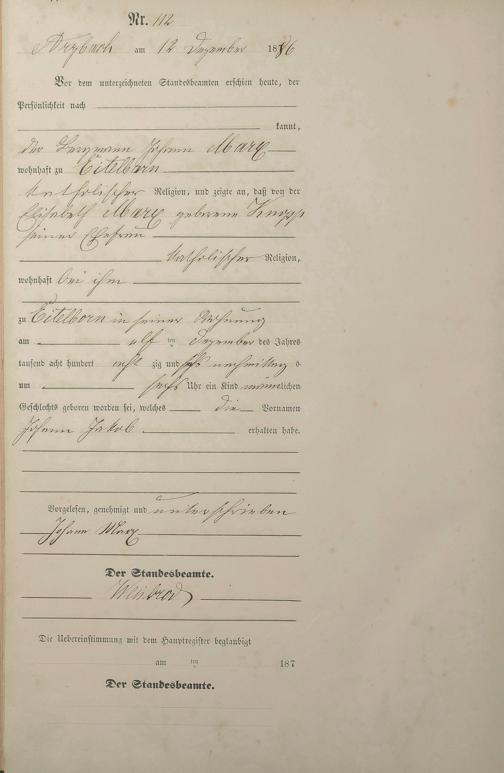 Nr. 112
Arzbach am 12 Dezember 1886
Vor dem unterzeichneten Standesbeamten erschien heute, der
Persönlichkeit nach
kannt,
der Bergmann Johann Marx
wohnhaft zu Eitelborn
katholischer Religion, und zeigte an, daß von der
Elisabeth Marx geborene Knopp
seiner Ehefrau
katholischer Religion,
wohnhaft bei ihm
zu Eitelborn in seiner Wohnung
am elf ten Dezember des Jahres
tausend acht hundert acht zig und sechs nachmittags
um sechs Uhr ein Kind männlichen
Geschlechts geboren worden sei, welches die Vornamen
Johann Jakob erhalten habe.
Vorgelesen, genehmigt und unterschrieben
Johann Marx
Der Standesbeamte.
Die Uebereinstimmung mit dem Hauptregister beglaubigt
am ten 187
Der Standesbeamte.